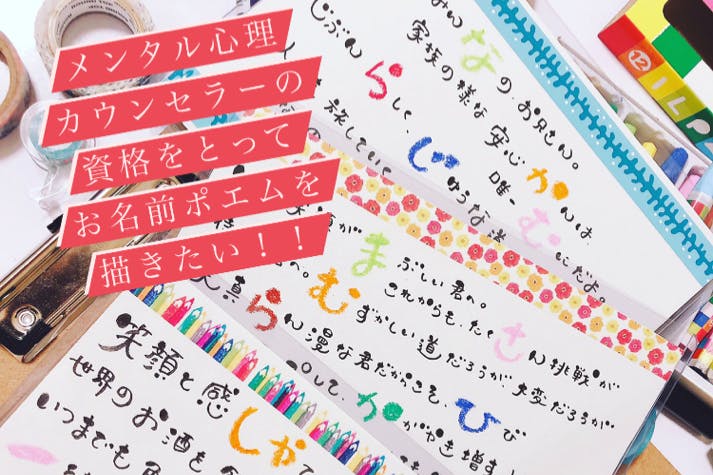 メンタル心理
カウンセラーの
資格をとって
お名前ポエムを
描きたい！！
みんなの、お兄さん。
家族の様な安心かんは、
唯一むにだよ。
じぶんらしく、じゆうな
旅していて
まぶしい君へ。
これからも、たくさん挑戦が
むずかしい道だろうが、大変だろうが
天真らん漫な君だからこそ、ひび
して、かがやき増す
笑顔と感しゃ
世界のお酒も
いつまでも
12